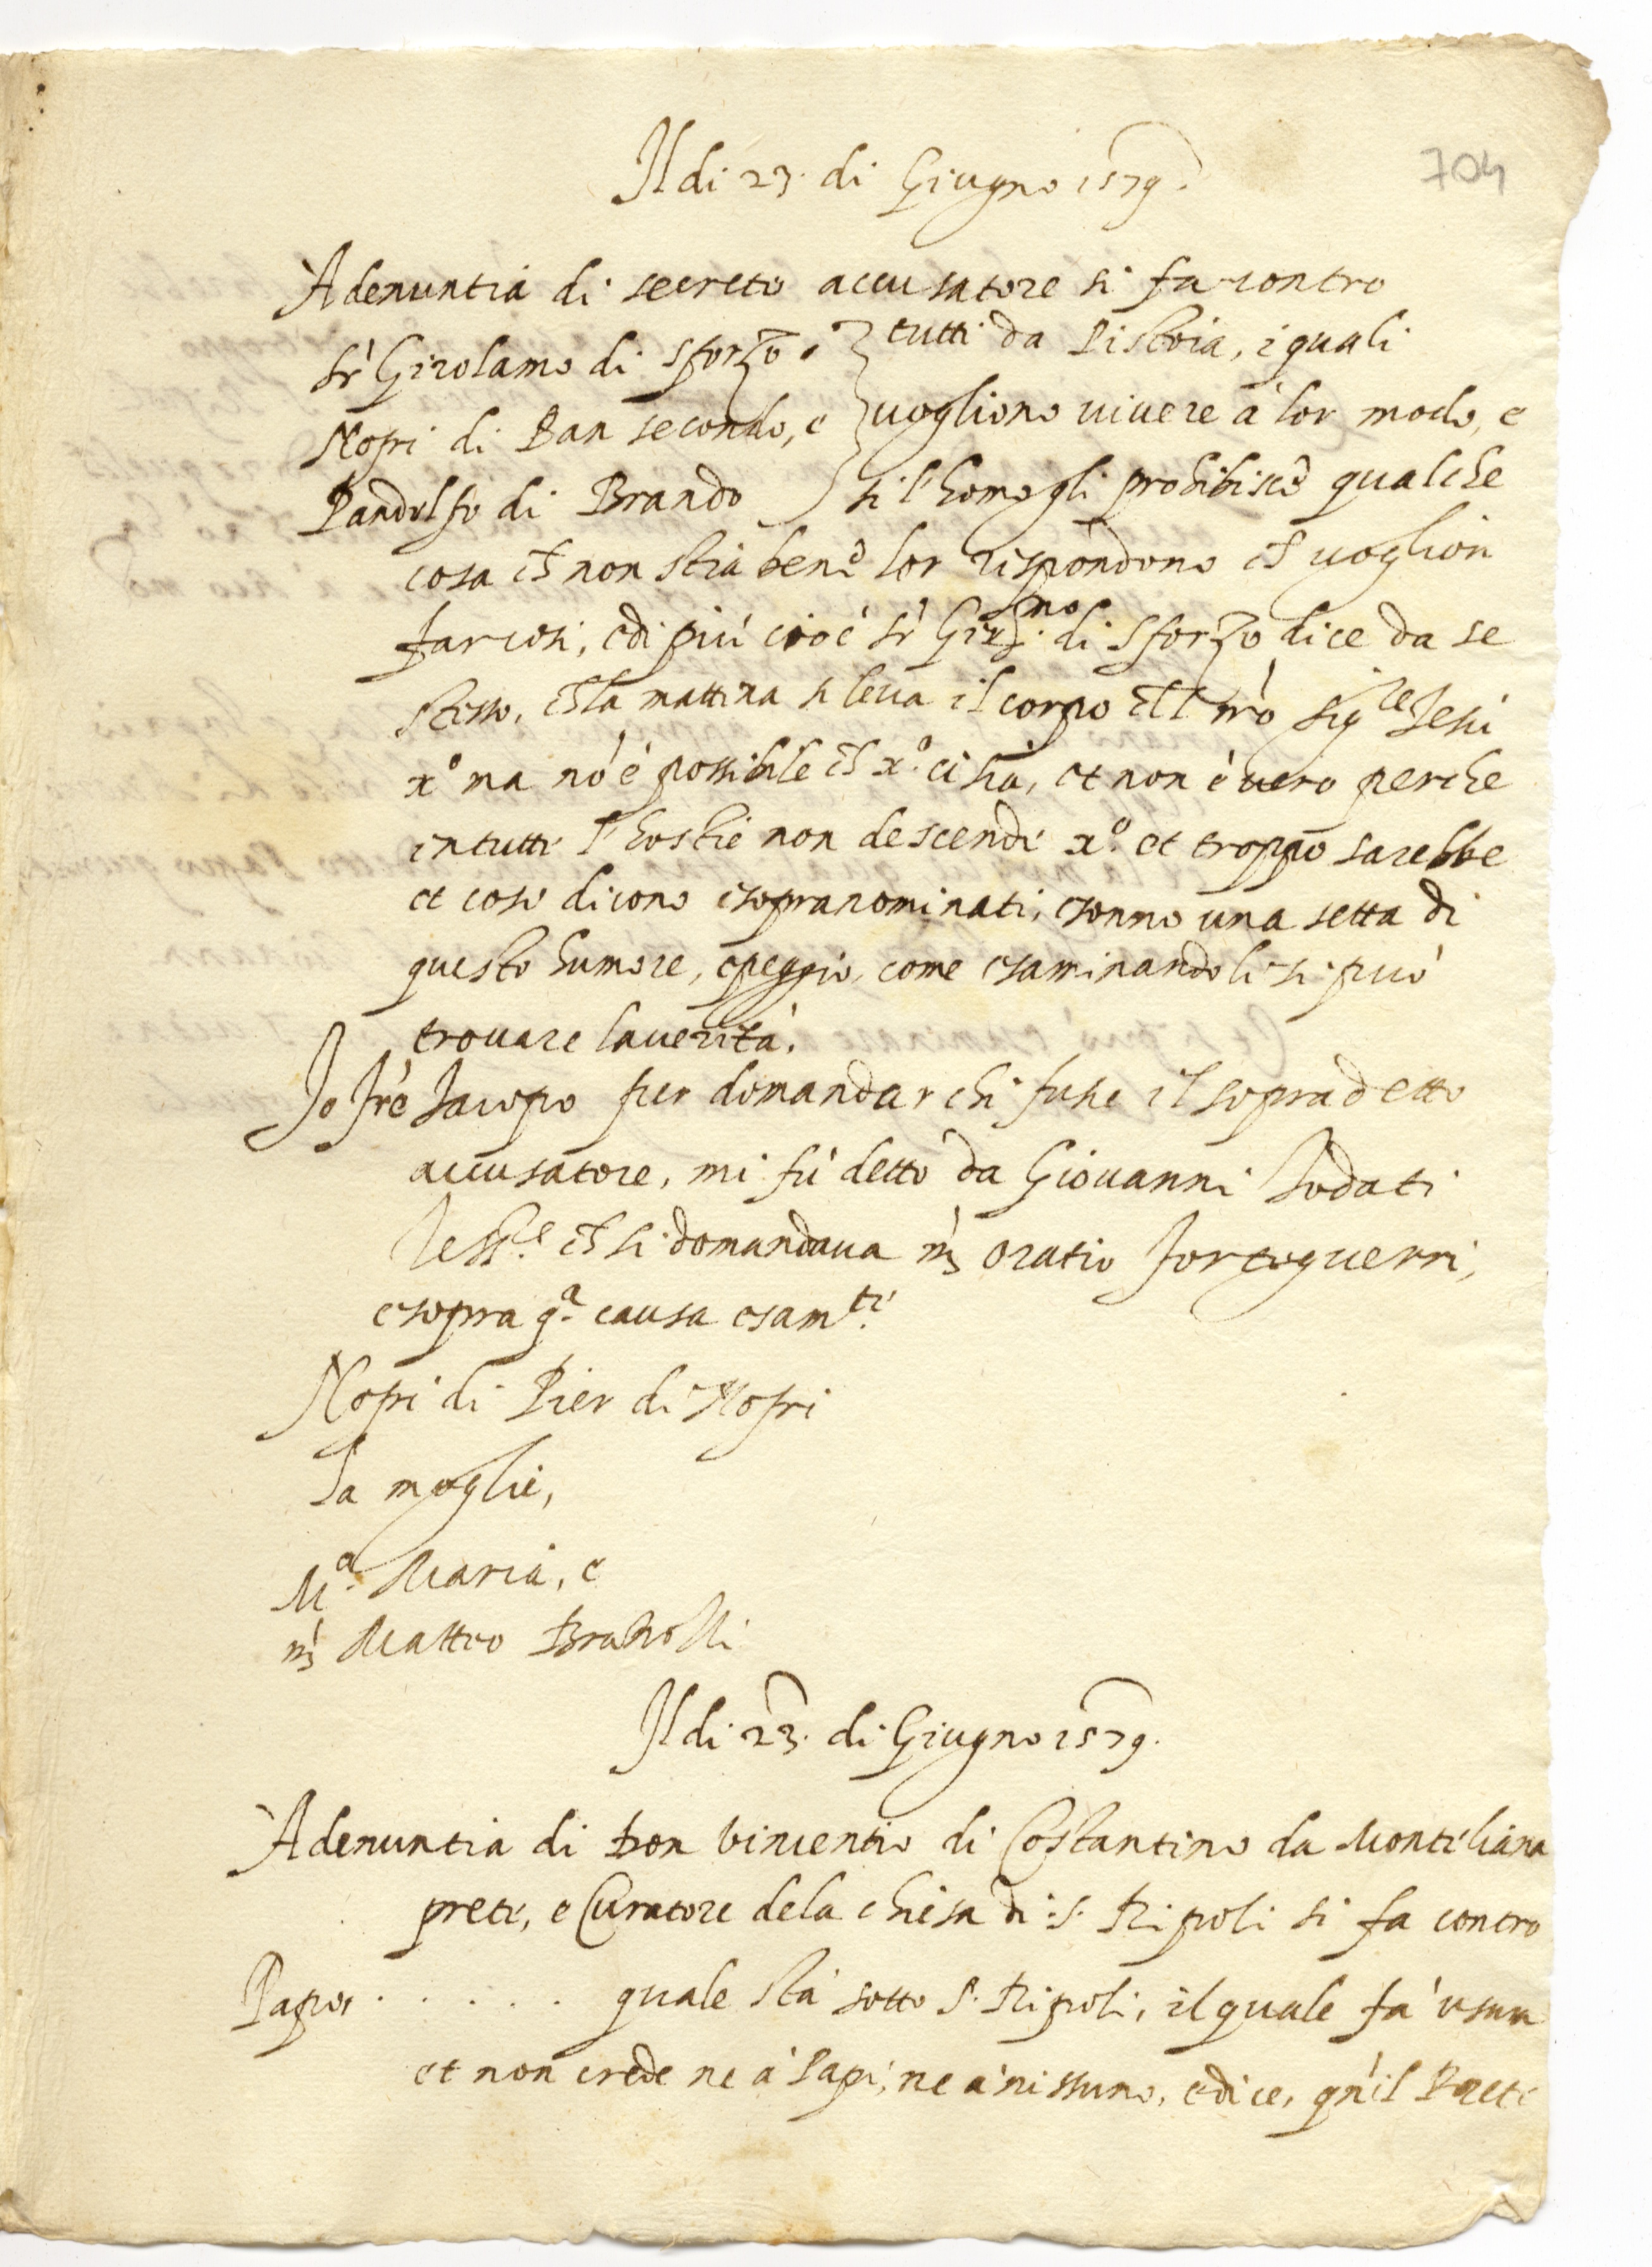 704
Il di 23. di Giugno 1579.
A denuntia di secreto accusatore si fa contro
Sr Girolamo di Sforzo e } tutti da Pistoia, i quali
Nofri di Ban secondo, e } vogliono vivere à lor modo, e
Pandolfo di Brando } si l'homo gli prohibisce qualche
cosa ch̃ non stia bene lor rispondono ch̃ voglion
far così, e di più cioè Sr Girmo. di Sforzo dice da se
stesso, ch̃ la mattina si leva il corpo del nrõ sigre Jesu
xo ma nõ è possibile ch̃ xo. ci sia, et non è vero perche
in tutte l'hostie non descende xo. et troppo sarebbe
et cosi dicono e sopranominati, e sonno una setta di
questo humore, e peggio, come esaminandoli si può
trovare la verità.
Io frè Jacopo per domandar chi fusse il sopradetto
accusatore, mi fù detto da Giovanni Sodati
ch̃ si domandava ms Oratio Forteguerri,
e sopra qa. causa esamti.
Nofri di Pier di Nofri
La moglie,
Ma. Maria, e
ms Matteo
Il di 23. di Giugno 1579.
A denuntia di Don Vincentio di Costantino da
prete, e Curatore dela chiesa di S. Ripoli si fa contro
Papo . . . . . . quale stà sotto S. Ripoli, il quale fà usura
et non crede ne à Papi, ne à nissuno, e dice, qñ il Prete